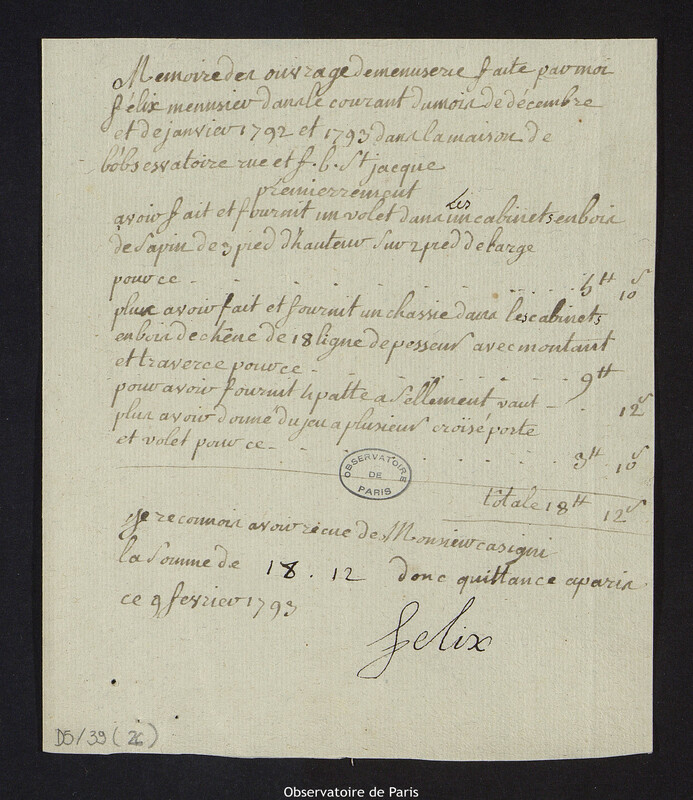 Memoire des ouvrage de menuserie faite par moi
félix menusier dans le courant du mois de décembre
et de janvier 1792 et 1793 dans la maison de
l'observatoire rue et f. b. St jacque
premierrement
avoir fait et fournit un volet dans les cabinets en bois
de sapin de 3 pied d'hauteur sur 2 pied de large
pour ce - . . . . . . 5 ₶ 10 s
plus avoir fait et fournit un chassie dans les cabinets
en bois de chêne de 18 ligne de pesseur avec montant
et traverce pour ce - . . . . . 9 ₶
pour avoir fournit 4 patte a sellement vaut - . . 12 s
plus avoir donné du jeu a plusieur croisé porte
et volet pour ce - . . . . . . 3 ₶ 10 s
OBSERVATOIRE DE PARIS
totale 18 ₶ 12 s
je reconnois avoir recue de Monsieur casigni
la somme de 18 . 12 donc quittance a paris
ce 9 fevrier 1793
felix
D5/39 (26)
Observatoire de Paris